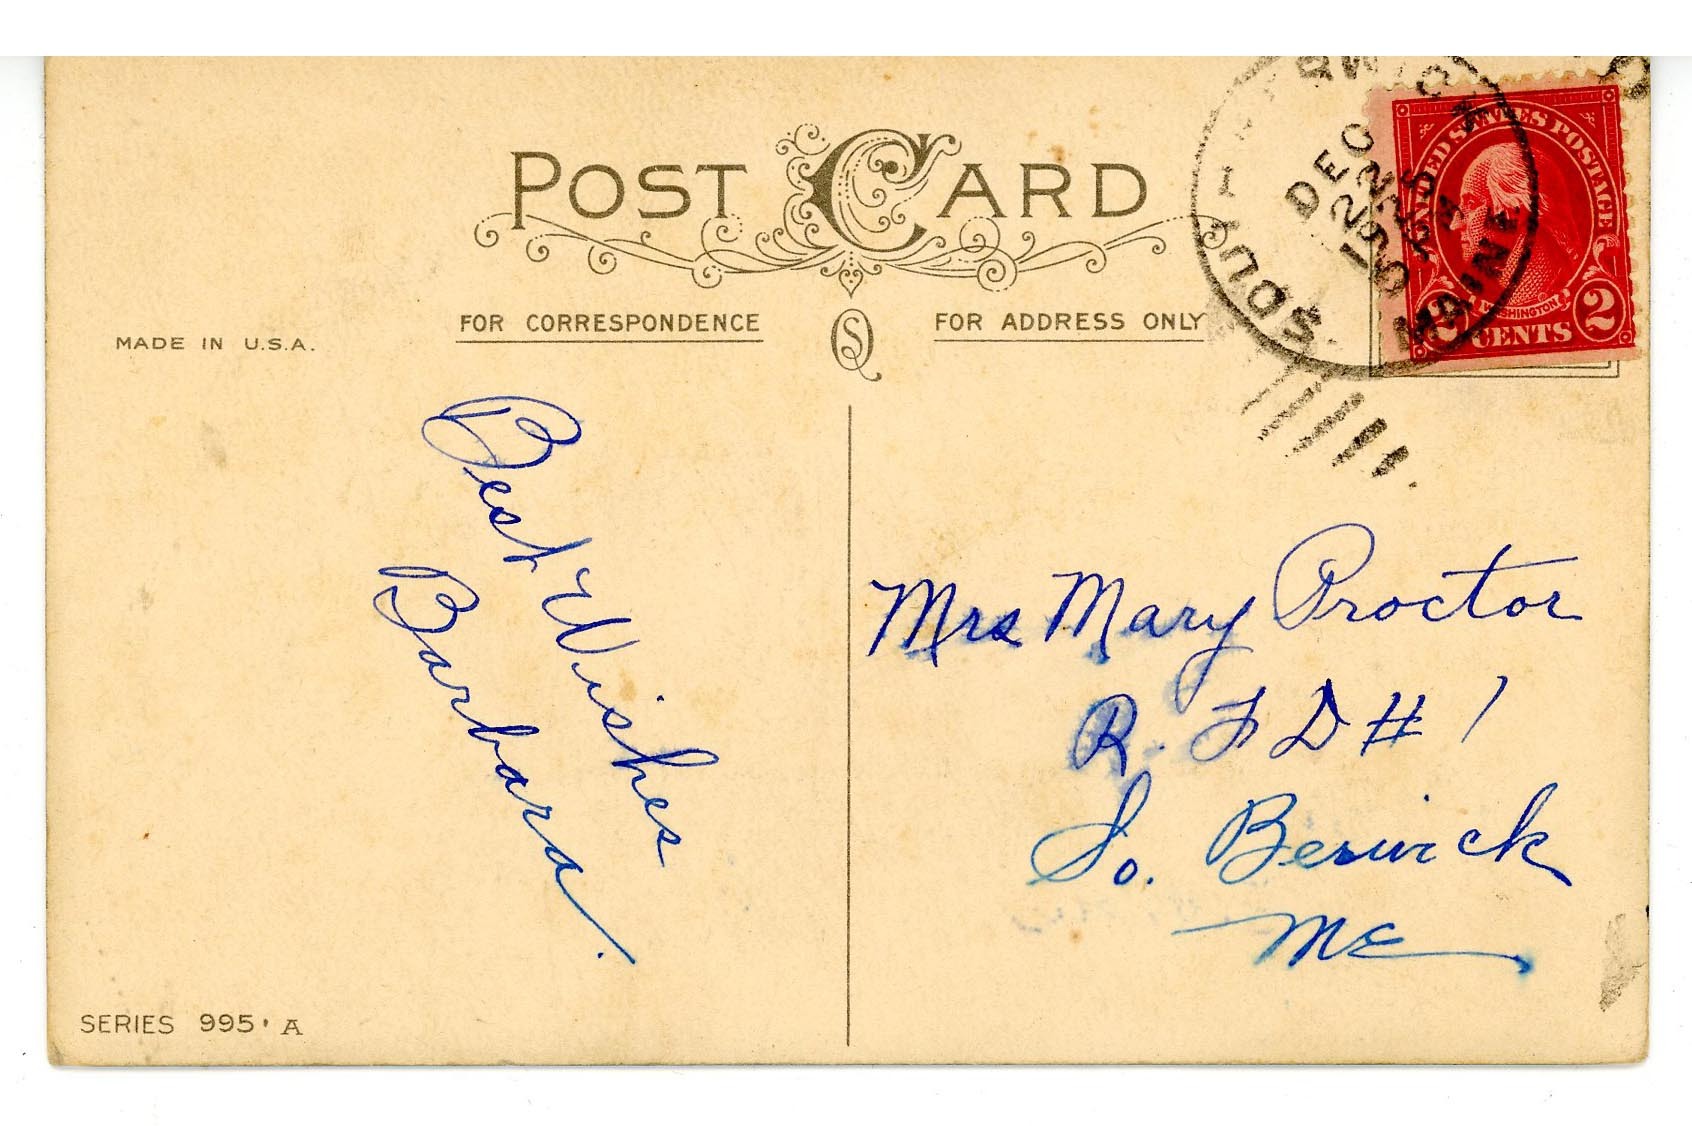 POST CARD
FOR CORRESPONDENCE
FOR ADDRESS ONLY
MADE IN U.S.A.
SQ
UNITED STATES POSTAGE
WASHINGTON
2 CENTS 2
DEC
22
MAINE
Best Wishes
Barbara.
Mrs Mary Proctor
R. F D # 1
So. Berwick
ME
SERIES 995 · A